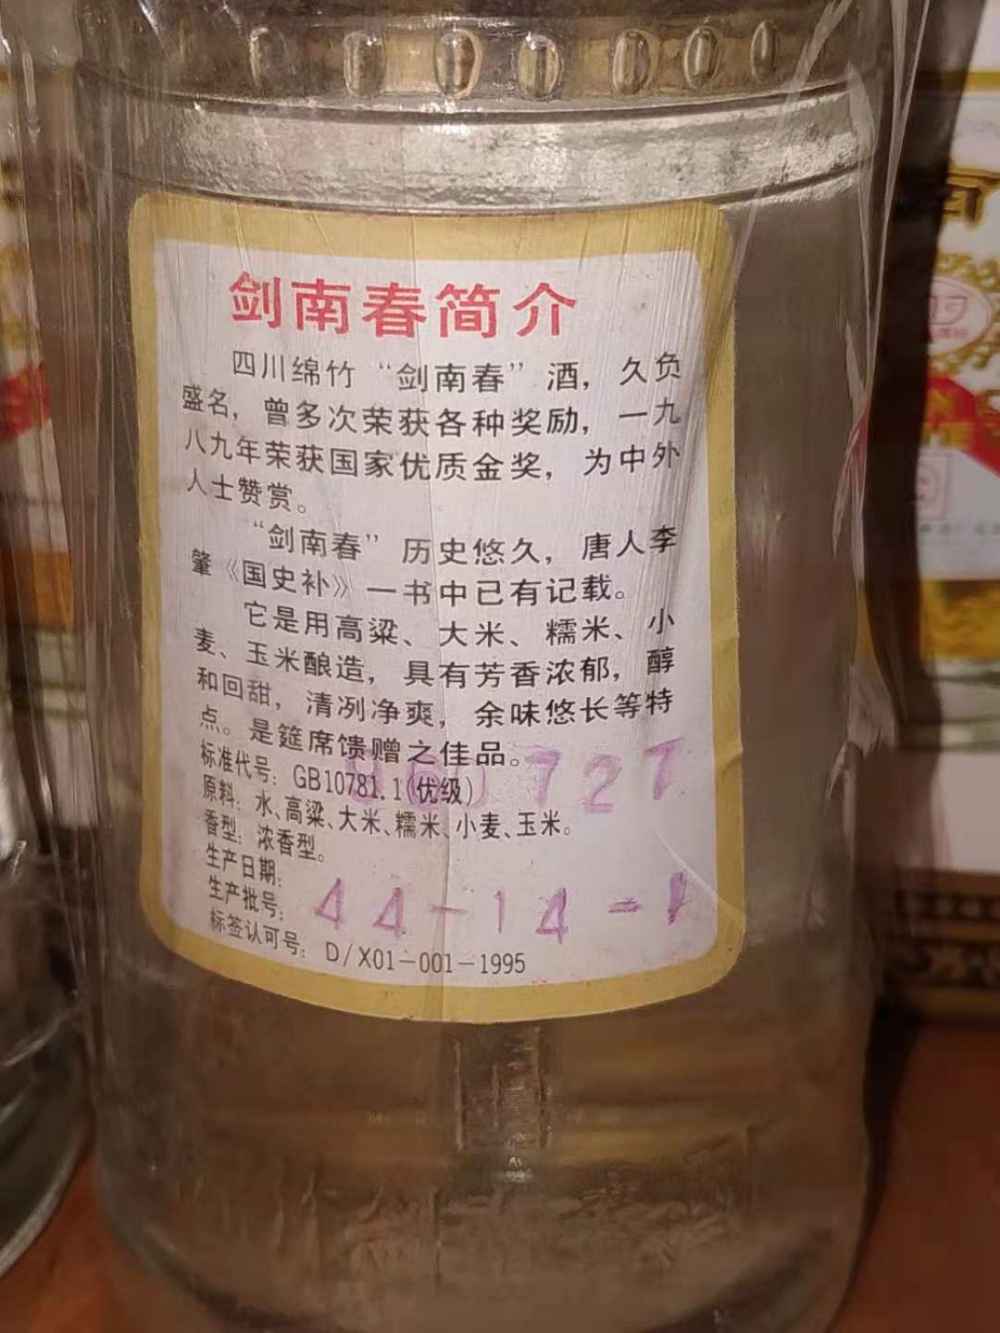 剑南春简介
四川绵竹“剑南春”酒，久负
盛名，曾多次荣获各种奖励，一九
八九年荣获国家优质金奖，为中外
人士赞赏。
“剑南春”历史悠久，唐人李
肇《国史补》一书中已有记载。
它是用高粱、大米、糯米、小
麦、玉米酿造，具有芳香浓郁，醇
和回甜，清冽净爽，余味悠长等特
点。是筵席馈赠之佳品。
标准代号：GB10781.1(优级)
727
原料：水、高粱、大米、糯米、小麦、玉米。
香型：浓香型。
生产日期：
生产批号：44-14-1
标签认可号：D/X01-001-1995